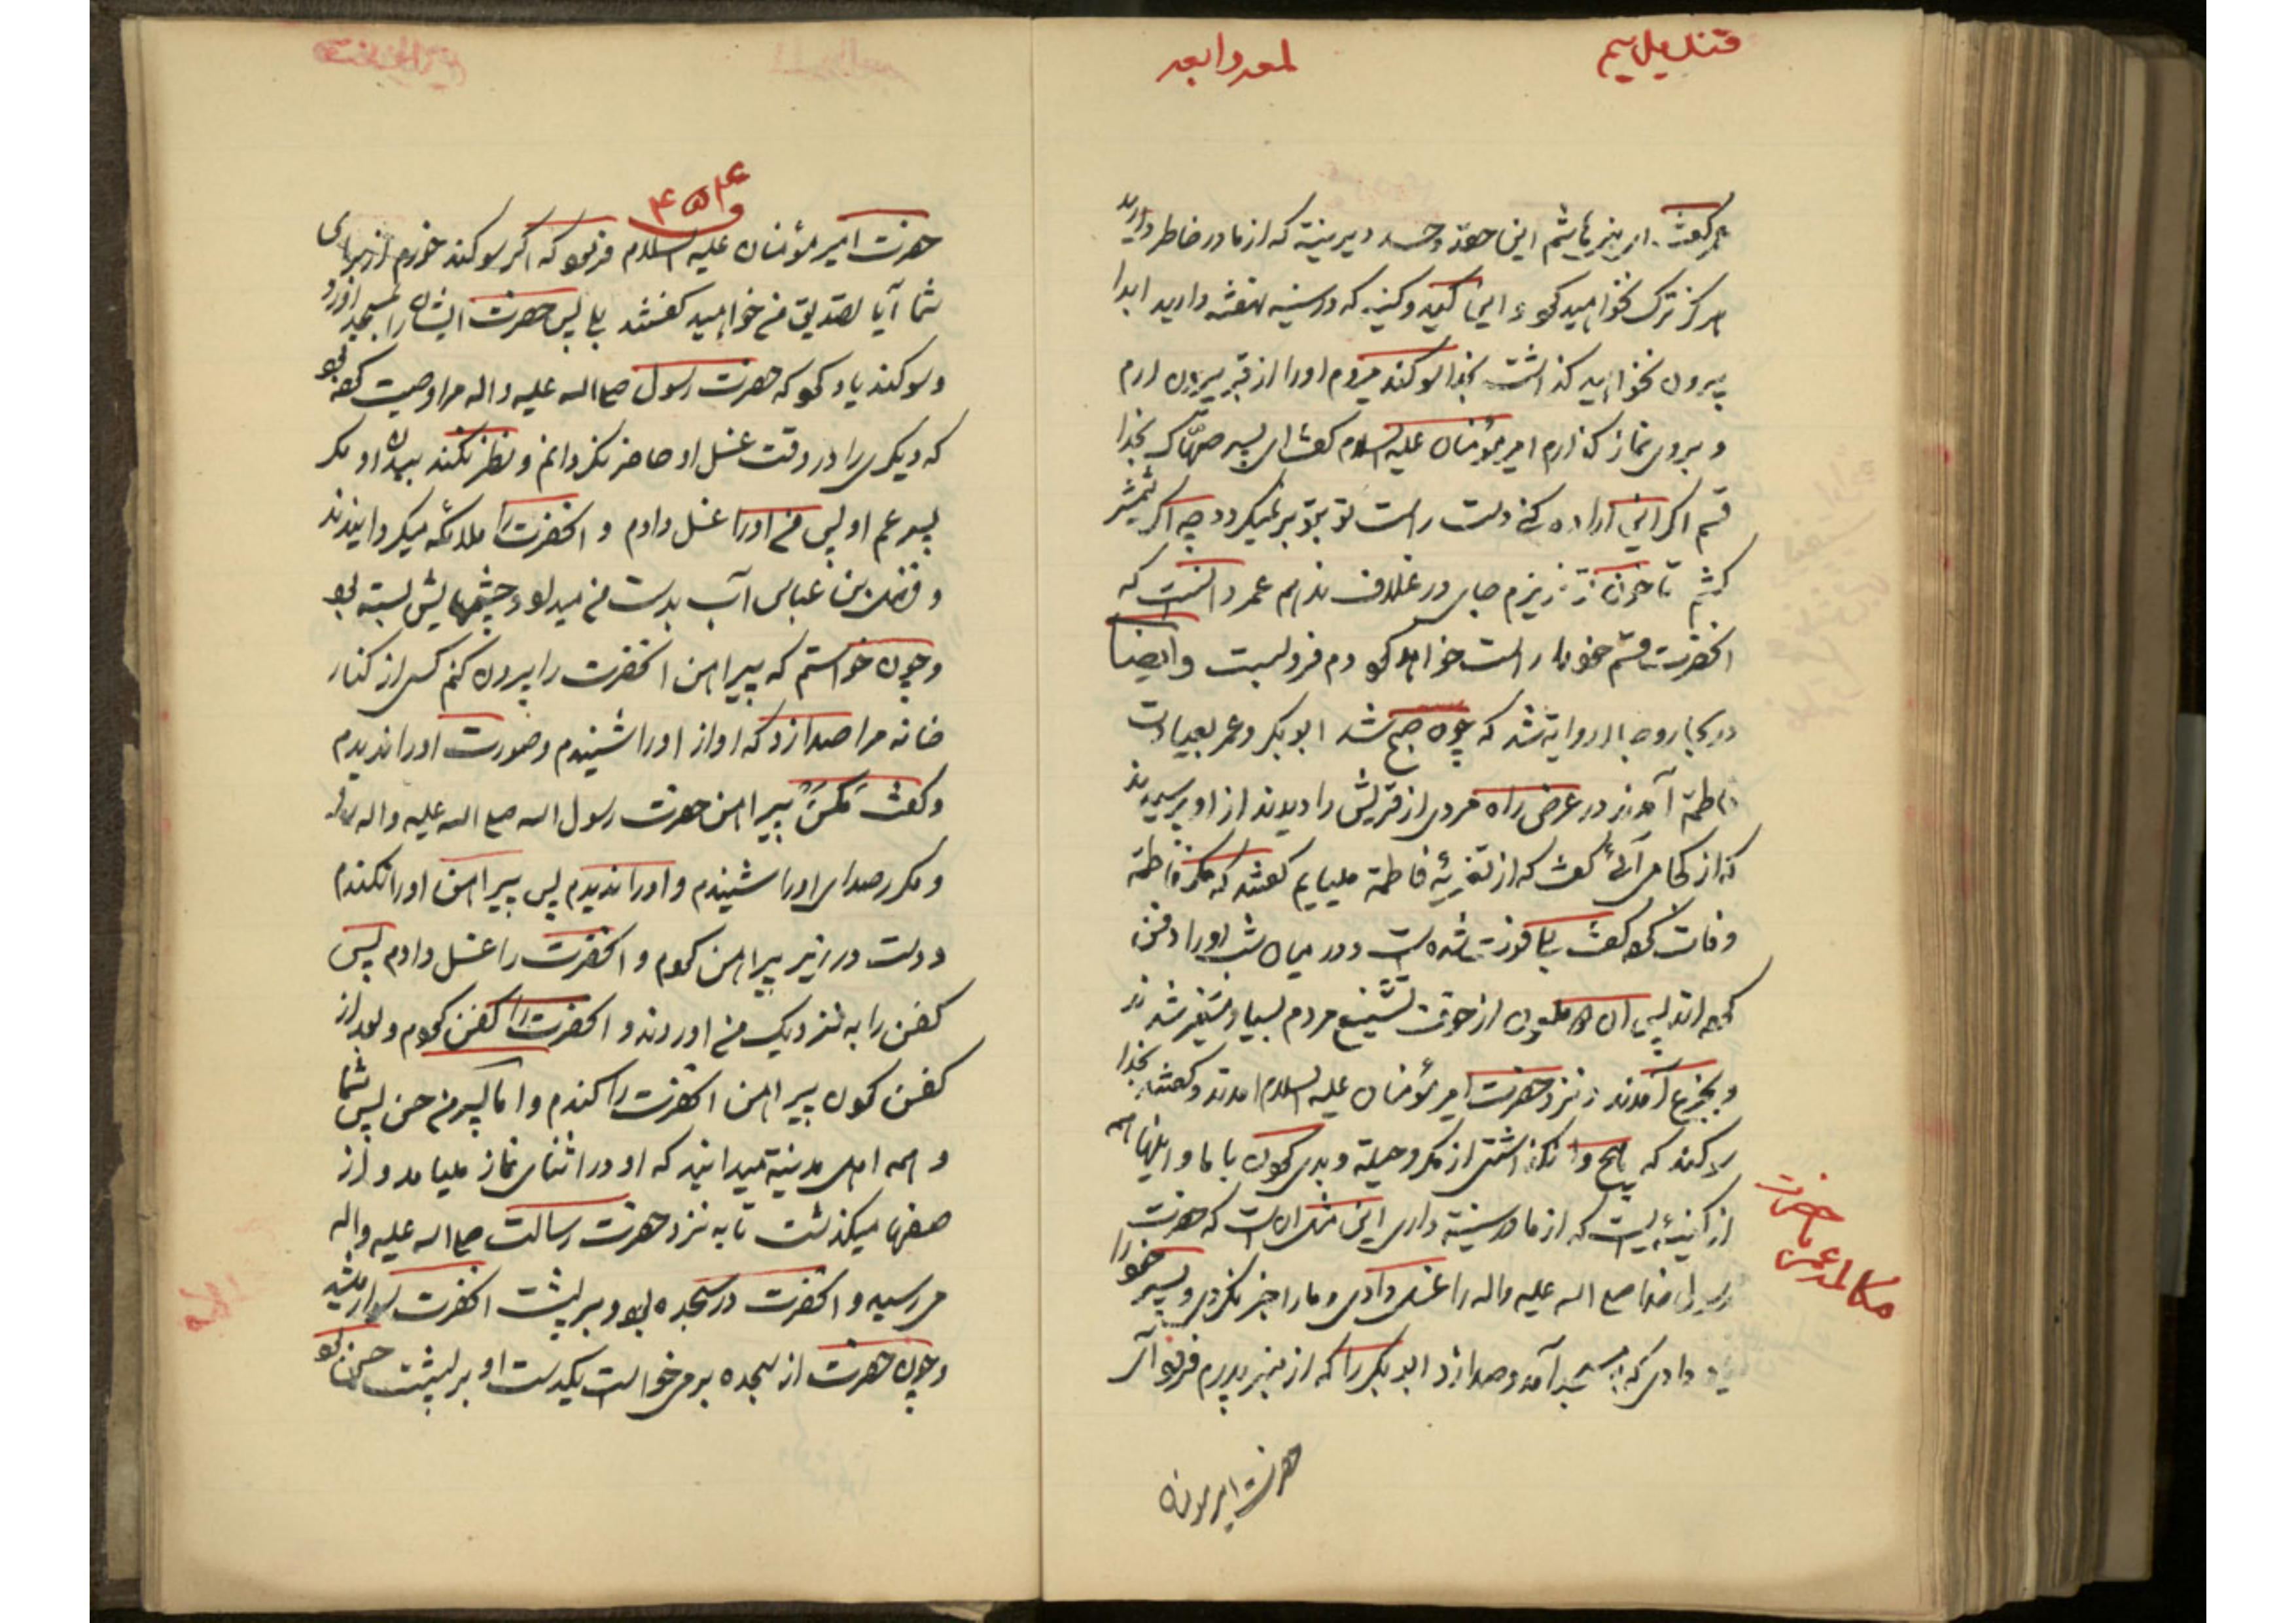 قندیل سیم
لمعه رابعه
عمر گفت ای بنی هاشم این حقد و حسد دیرینه که از ما در خاطر دارید
هرگز ترک نخواهید کرد و این کید و کینه که در سینه نهفته دارید ابدا
بیرون نخواهید گذاشت بخدا سوکند میروم او را از قبر بیرون ارم
و بروی نماز گذارم امیر مؤمنان علیه السلام گفت ای پسر صهّاک بخدا
قسم اگر این اراده کنی دست راست تو بتو برنمیگردد چه اگر شمشیر
کشم تا خون تو نریزم جای در غلاف ندهم عمر دانست که
انحضرت قسم خود را راست خواهد کرد دم فرو بست وایضا
در بحار و جلا روایة شد که چون صبح شد ابوبکر و عمر بعیادت
فاطمة آمدند در عرض راه مردی از قریش را دیدند از او پرسیدند
که از کجا می آئی گفت که از تعزیهٔ فاطمة میایم گفتند که مگر فاطمة
وفات کرد گفت بلی فوت شده است و در میان شب او را دفن
کرده اند پس ان دو ملعون از خوف تشنیع مردم بسیار متغیر شدند
و بجزع آمدند و نزد حضرت امیر مؤمنان علیه السلام امدند و گفتند بخدا
سوکند که هیچ وا نگذاشتی از مکر و حیلة و بدی کردن با ما و اینها همه
از کینهٔ است که از ما در سینة داری این مثل ان است که حضرت
رسول خدا صلی الله علیه واله را غسل دادی و ما را خبر نکردی و پسر خود را
یاد دادی که بمسجد آمد و صدا زد ابوبکر را که از منبر پدرم فرود آی
مکالمه عمر با حضرت
حضرت امیر مؤمنان
۴۵۴
حضرت امیر مؤمنان علیه السلام فرمود که اگر سوکند خورم از برای
شما آیا تصدیق من خواهید کرد گفتند بلی پس حضرت ایشان را بمسجد اورد
و سوکند یاد کرد که حضرت رسول صلی الله علیه واله مرا وصیت کرده بود
که دیگری را در وقت غسل او حاضر نگردانم و نظر نکند ببدن او مگر
پسر عم او پس من او را غسل دادم و انحضرت را ملائکه میگردانیدند
و فضل بن عباس آب بدست من میداد و چشمهایش بسته بود
و چون خواستم که پیراهن انحضرت را بیرون کنم کسی از کنار
خانه مرا صدا زد که اواز او را شنیدم و صورت او را ندیدم
و گفت مکن پیراهن حضرت رسول الله صلی الله علیه واله را
و مکرر صدای او را شنیدم و او را ندیدم پس پیراهن او را نکندم
و دست در زیر پیراهن کردم و انحضرت را غسل دادم پس
کفن را به نزدیک من اوردند و انحضرت را کفن کردم و بعد از
کفن کردن پیراهن انحضرت را کندم و اما پسر من حسن پس شما
و همه اهل مدینة میدانید که او در اثنای نماز میامد و از
صفها میگذشت تا به نزد حضرت رسالت صلی الله علیه واله
می رسید و انحضرت در سجده بود و بر پشت انحضرت سوار میشد
و چون حضرت از سجده بر می خواست یکدست او بر پشت حسن بود